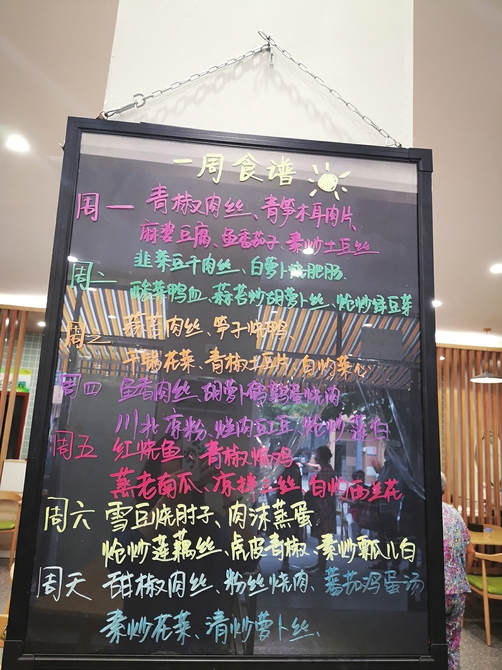 一周食谱
周一 青椒肉丝、青笋木耳肉片、
麻婆豆腐、鱼香茄子、素炒土豆丝
周二 韭菜豆干肉丝、白萝卜烧肥肠、
酸菜鸭血、蒜苔炒胡萝卜丝、炝炒绿豆芽
周三 蒜苔肉丝、笋子烧鸭、
干锅花菜、青椒土豆片、白灼菜心
周四 鱼香肉丝、胡萝卜鹌鹑蛋烧肉
川北凉粉、烂肉豇豆 炝炒莲白
周五 红烧鱼、青椒烧鸡
蒸老南瓜、凉拌三丝、白灼西兰花
周六 雪豆烧肘子、肉沫蒸蛋
炝炒莲藕丝、虎皮青椒、素炒瓢儿白
周天 甜椒肉丝、粉丝烧肉、蕃茄鸡蛋汤
素炒花菜、清炒萝卜丝、